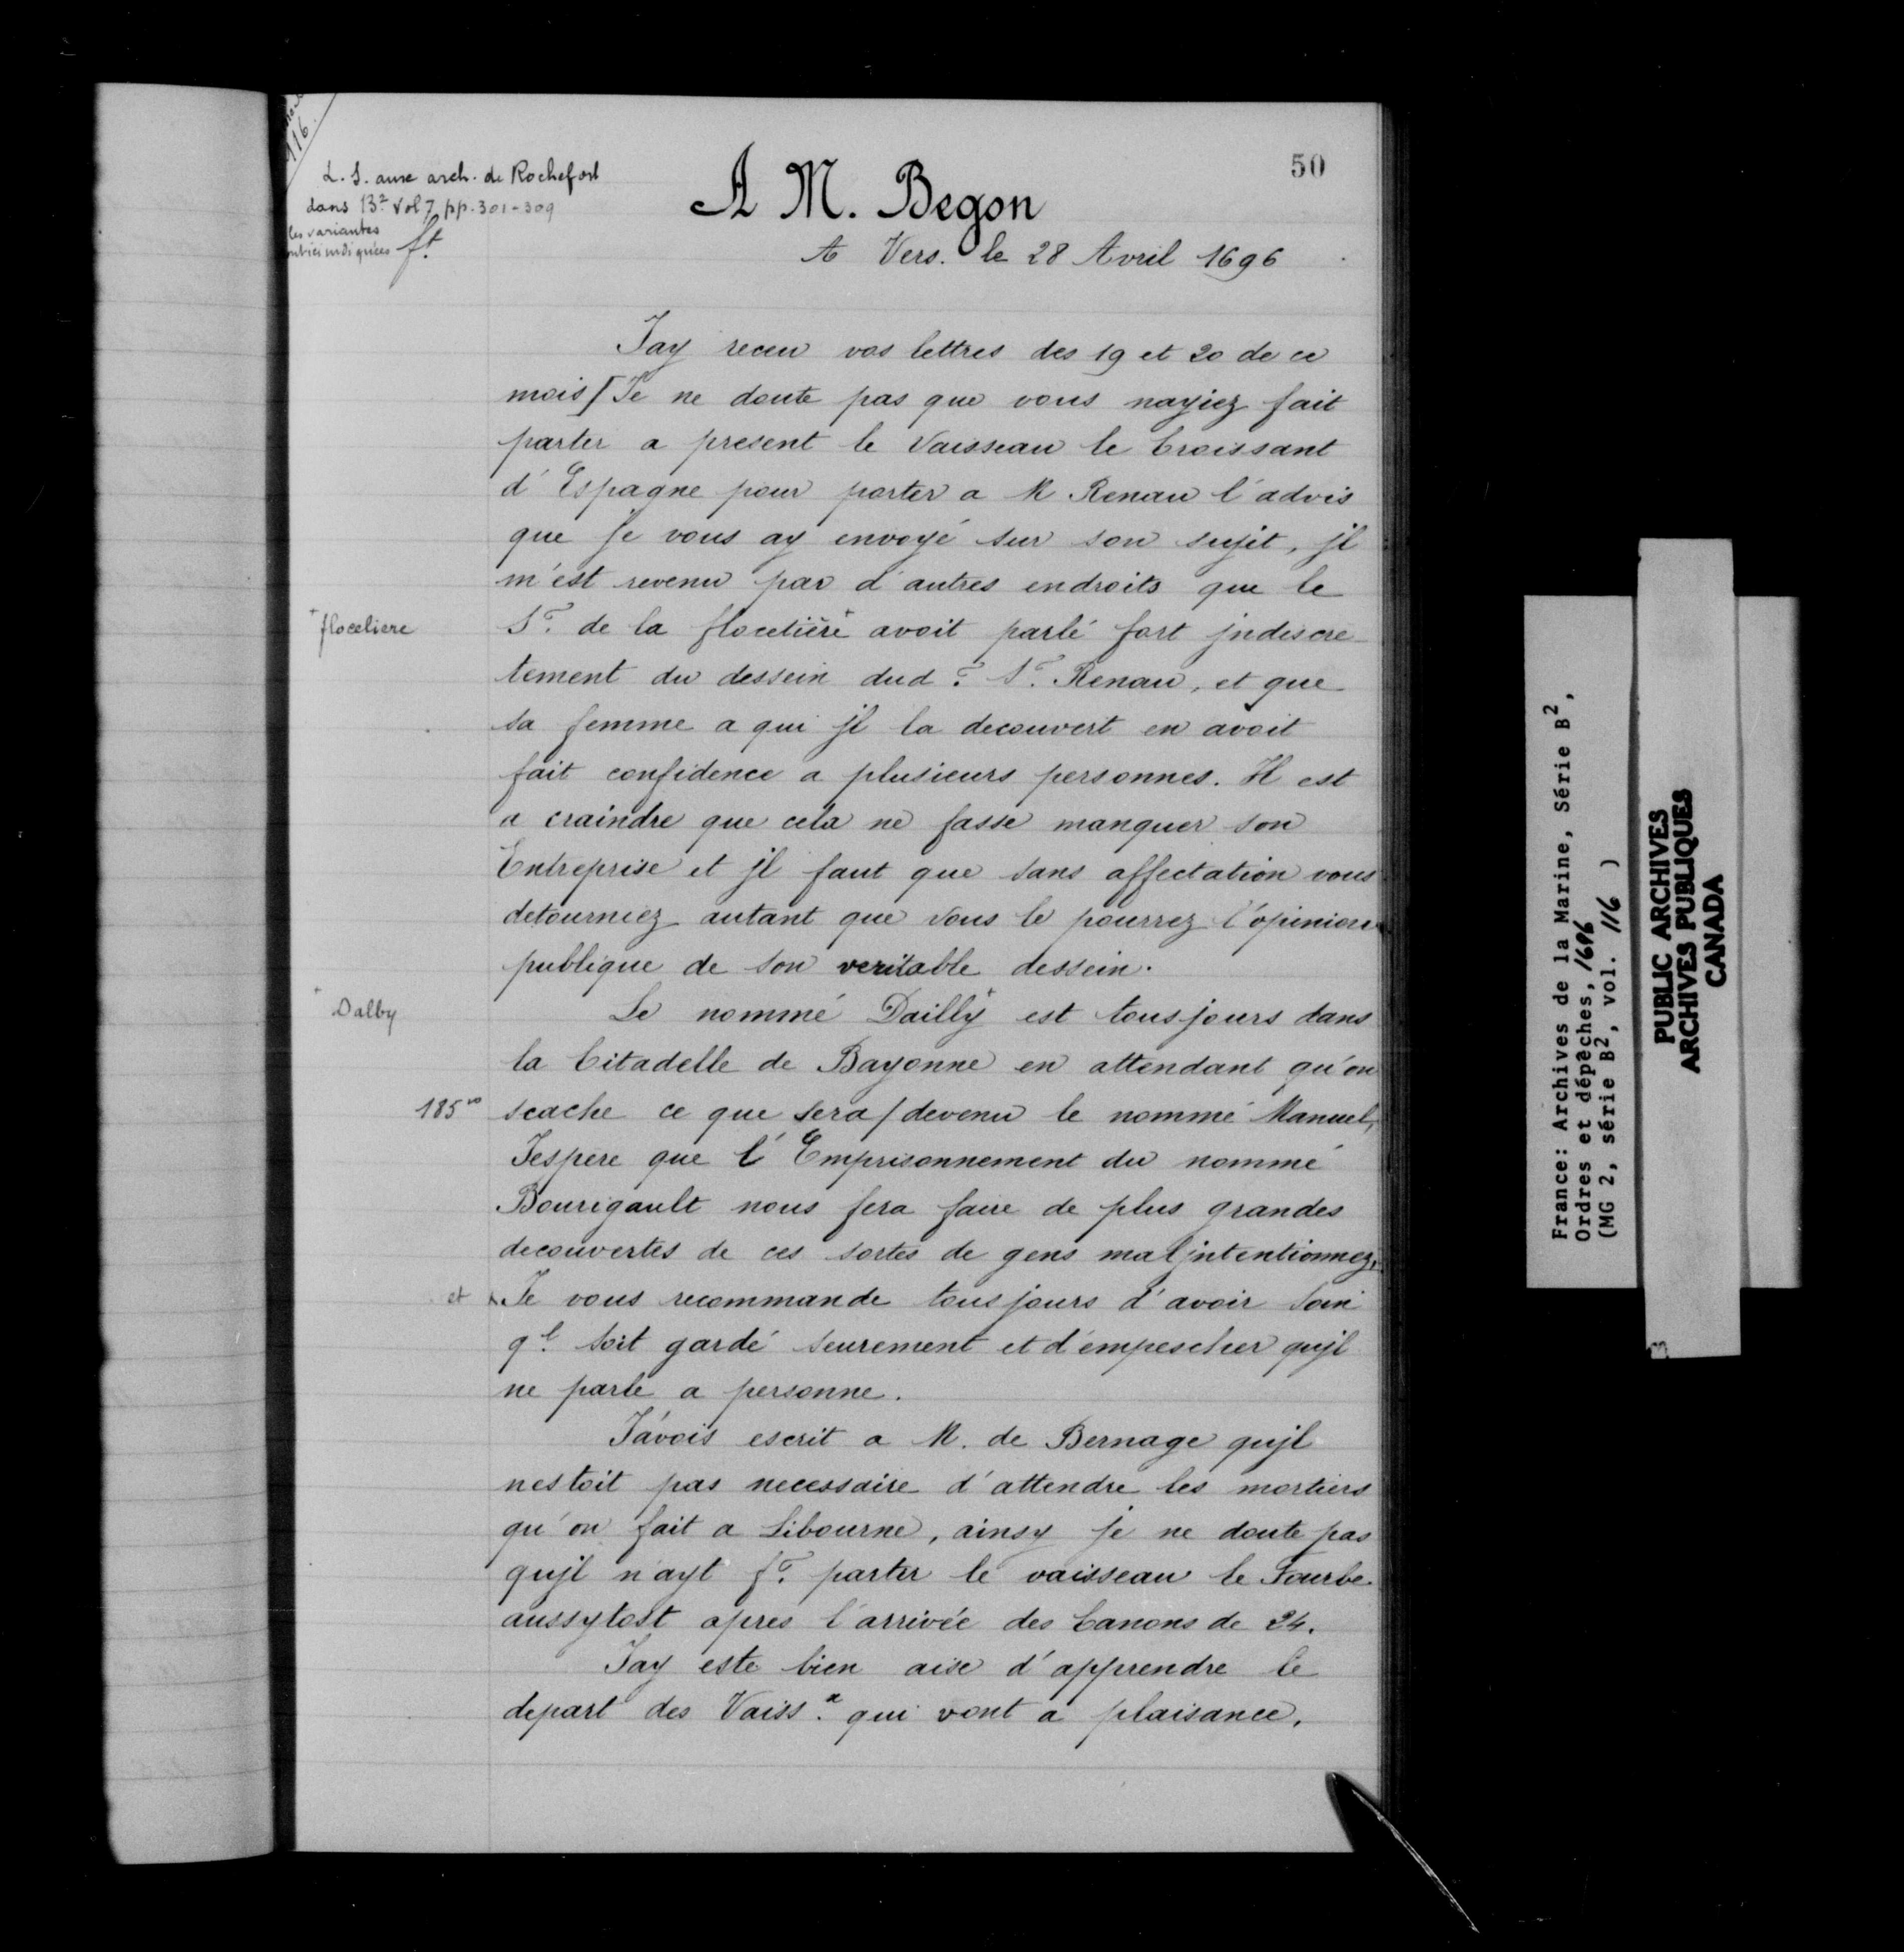 116.
50
L. S. aux arch. de Rochefort
dans B² vol 7 pp. 301-309
les variantes
sont ici indiquées ft.
A M. Begon
A Vers. le 28 Avril 1696
Jay receu vos lettres des 19 et 20 de ce
mois [Je ne doute pas que vous nayiez fait
partir a present le Vaisseau le Croissant
d'Espagne pour porter a M Renau l'advis
que Je vous ay envoyé sur son sujet, jl
m'est revenu par d'autres endroits que le
+ floceliere
Sr. de la flocetière+ avoit parlé fort jndiscre-
tement du dessein dud. Sr. Renau, et que
sa femme a qui jl la decouvert en avoit
fait confidence a plusieurs personnes. Il est
a craindre que cela ne fasse manquer son
Entreprise et jl faut que sans affectation vous
detourniez autant que vous le pourrez l'opinion
publique de son veritable dessein.
+ Dalby
Le nommé Dailly+ est tousjours dans
la Citadelle de Bayonne en attendant qu'on
185vo
scache ce que sera / devenu le nommé Manuel,
Jespere que l'Emprisonnement du nommé
Bourigault nous fera faire de plus grandes
decouvertes de ces sortes de gens mal jntentionnez,
et
Je vous recommande tousjours d'avoir soin
ql. soit gardé seurement et d'empescher qujl
ne parle a personne.
J'avois escrit a M. de Bernage qujl
nestoit pas necessaire d'attendre les mortiers
qu'on fait a Libourne, ainsy je ne doute pas
qujl n'ayt ft. partir le vaisseau le Fourbe
aussytost apres l'arrivée des Canons de 24.
Jay este bien aise d'apprendre le
depart des Vaiss.x qui vont a plaisance.
France: Archives de la Marine, Série B²,
Ordres et dépêches, 1696
(MG 2, série B², vol. 116 )
PUBLIC ARCHIVES
ARCHIVES PUBLIQUES
CANADA
3